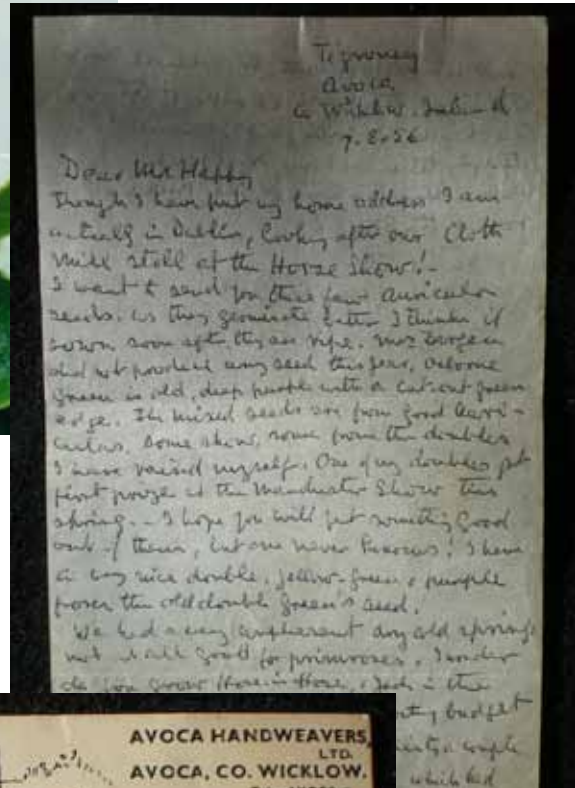 Tigroney
Avoca
Co Wicklow. Ireland
7.8.56
Dear Mr
Though I have put my home address I am
actually in Dublin, looking after our Cloth
Mill stall at the Horse Show! -
I want to send you these few auricula
seeds. as they germinate better I think if
sown soon after they are ripe. Mrs
did not produce any seed this year, Osborne
Green is old, deep purple with a cut-out green
edge. The mixed seeds are from good auri-
culas. Some show, some from the doubles
I have raised myself. One of my doubles got
first prize at the Manchester Show this
spring. - I hope you will get something good
out of them, but one never knows! I have
a very nice double, yellow-green & purple
from the old double green's seed.
We had a very dry cold spring
not at all good for primroses. I wonder
do you grow Hose in Hose, Jack in the
budget
a couple
which had
AVOCA HANDWEAVERS,
LTD.
AVOCA, CO. WICKLOW.